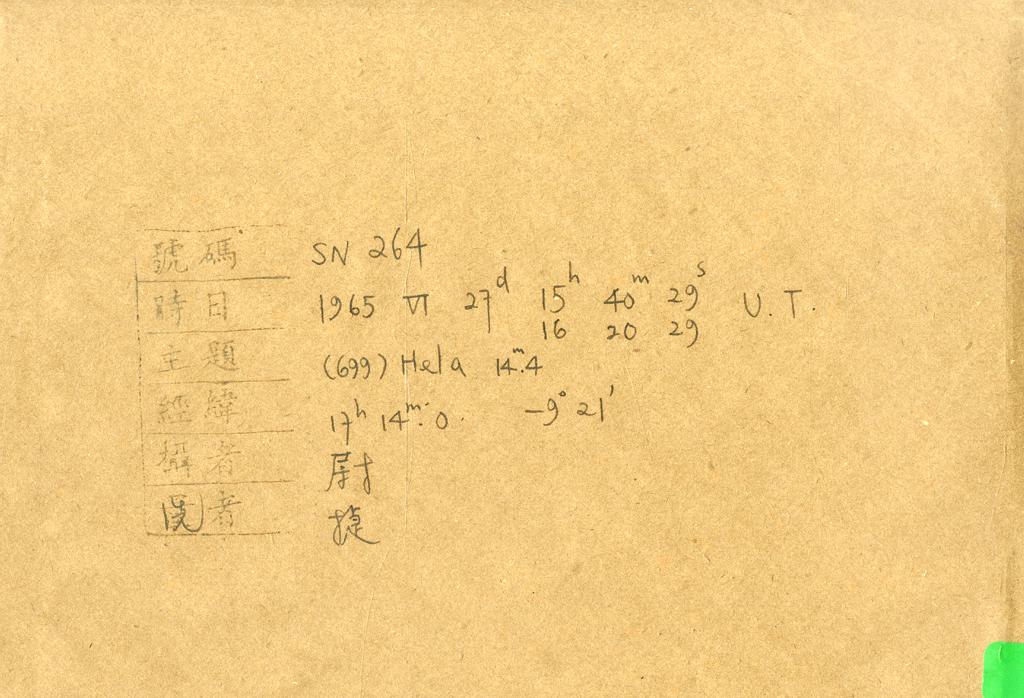 號碼 SN 264
時日 1965 VI 27d 15h 40m 29s U.T.
16 20 29
主題 (699) Hela 14m.4
經緯 17h 14m.0 -9° 21'
攝者 尉
洗者 捷